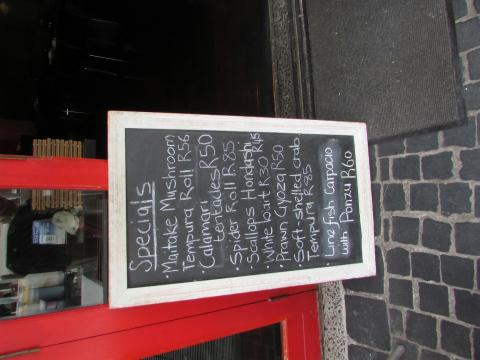 Specials
Maitake Mushroom
Tempura Roll R56
· Calamari
tentacles R50
· Spider Roll R85
· Scallops Honzushi R45
· White bait R30
· Prawn Gyoza R50
· Soft-shelled crab
Tempura R85
· Line fish Carpacio
with Ponzu R60